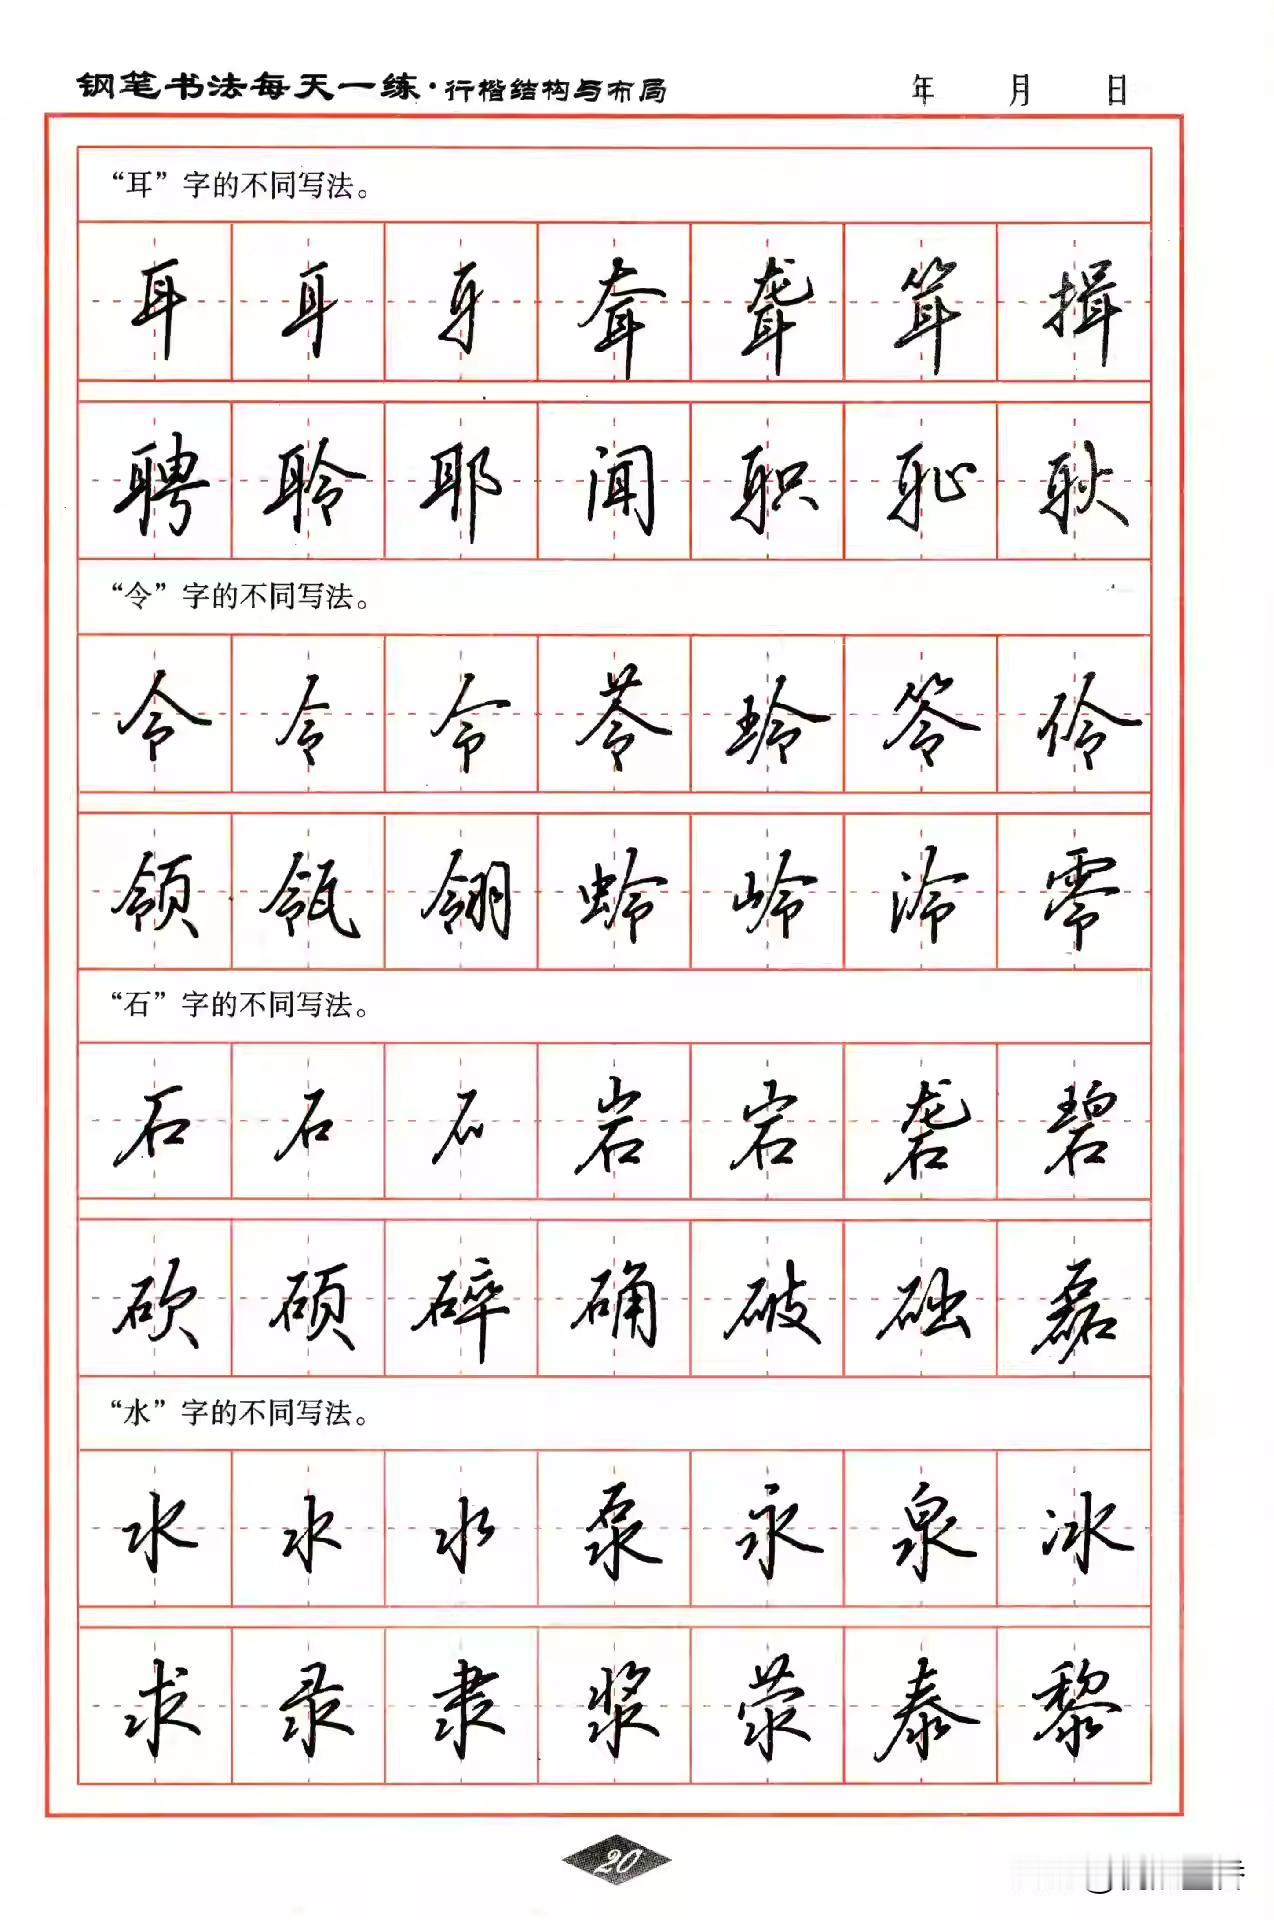 钢笔书法每天一练·行楷结构与布局 年 月 日
“耳”字的不同写法。
耳 耳 耳 耷 聋 筝 揖
聘 聆 耶 闻 职 耻 耿
“令”字的不同写法。
令 令 令 苓 玲 笭 伶
领 瓴 翎 蛉 岭 泠 零
“石”字的不同写法。
石 石 石 岩 宕 砻 碧
砍 硕 碎 确 破 础 磊
“水”字的不同写法。
水 水 水 泵 永 泉 冰
求 录 隶 浆 荥 泰 黎
20